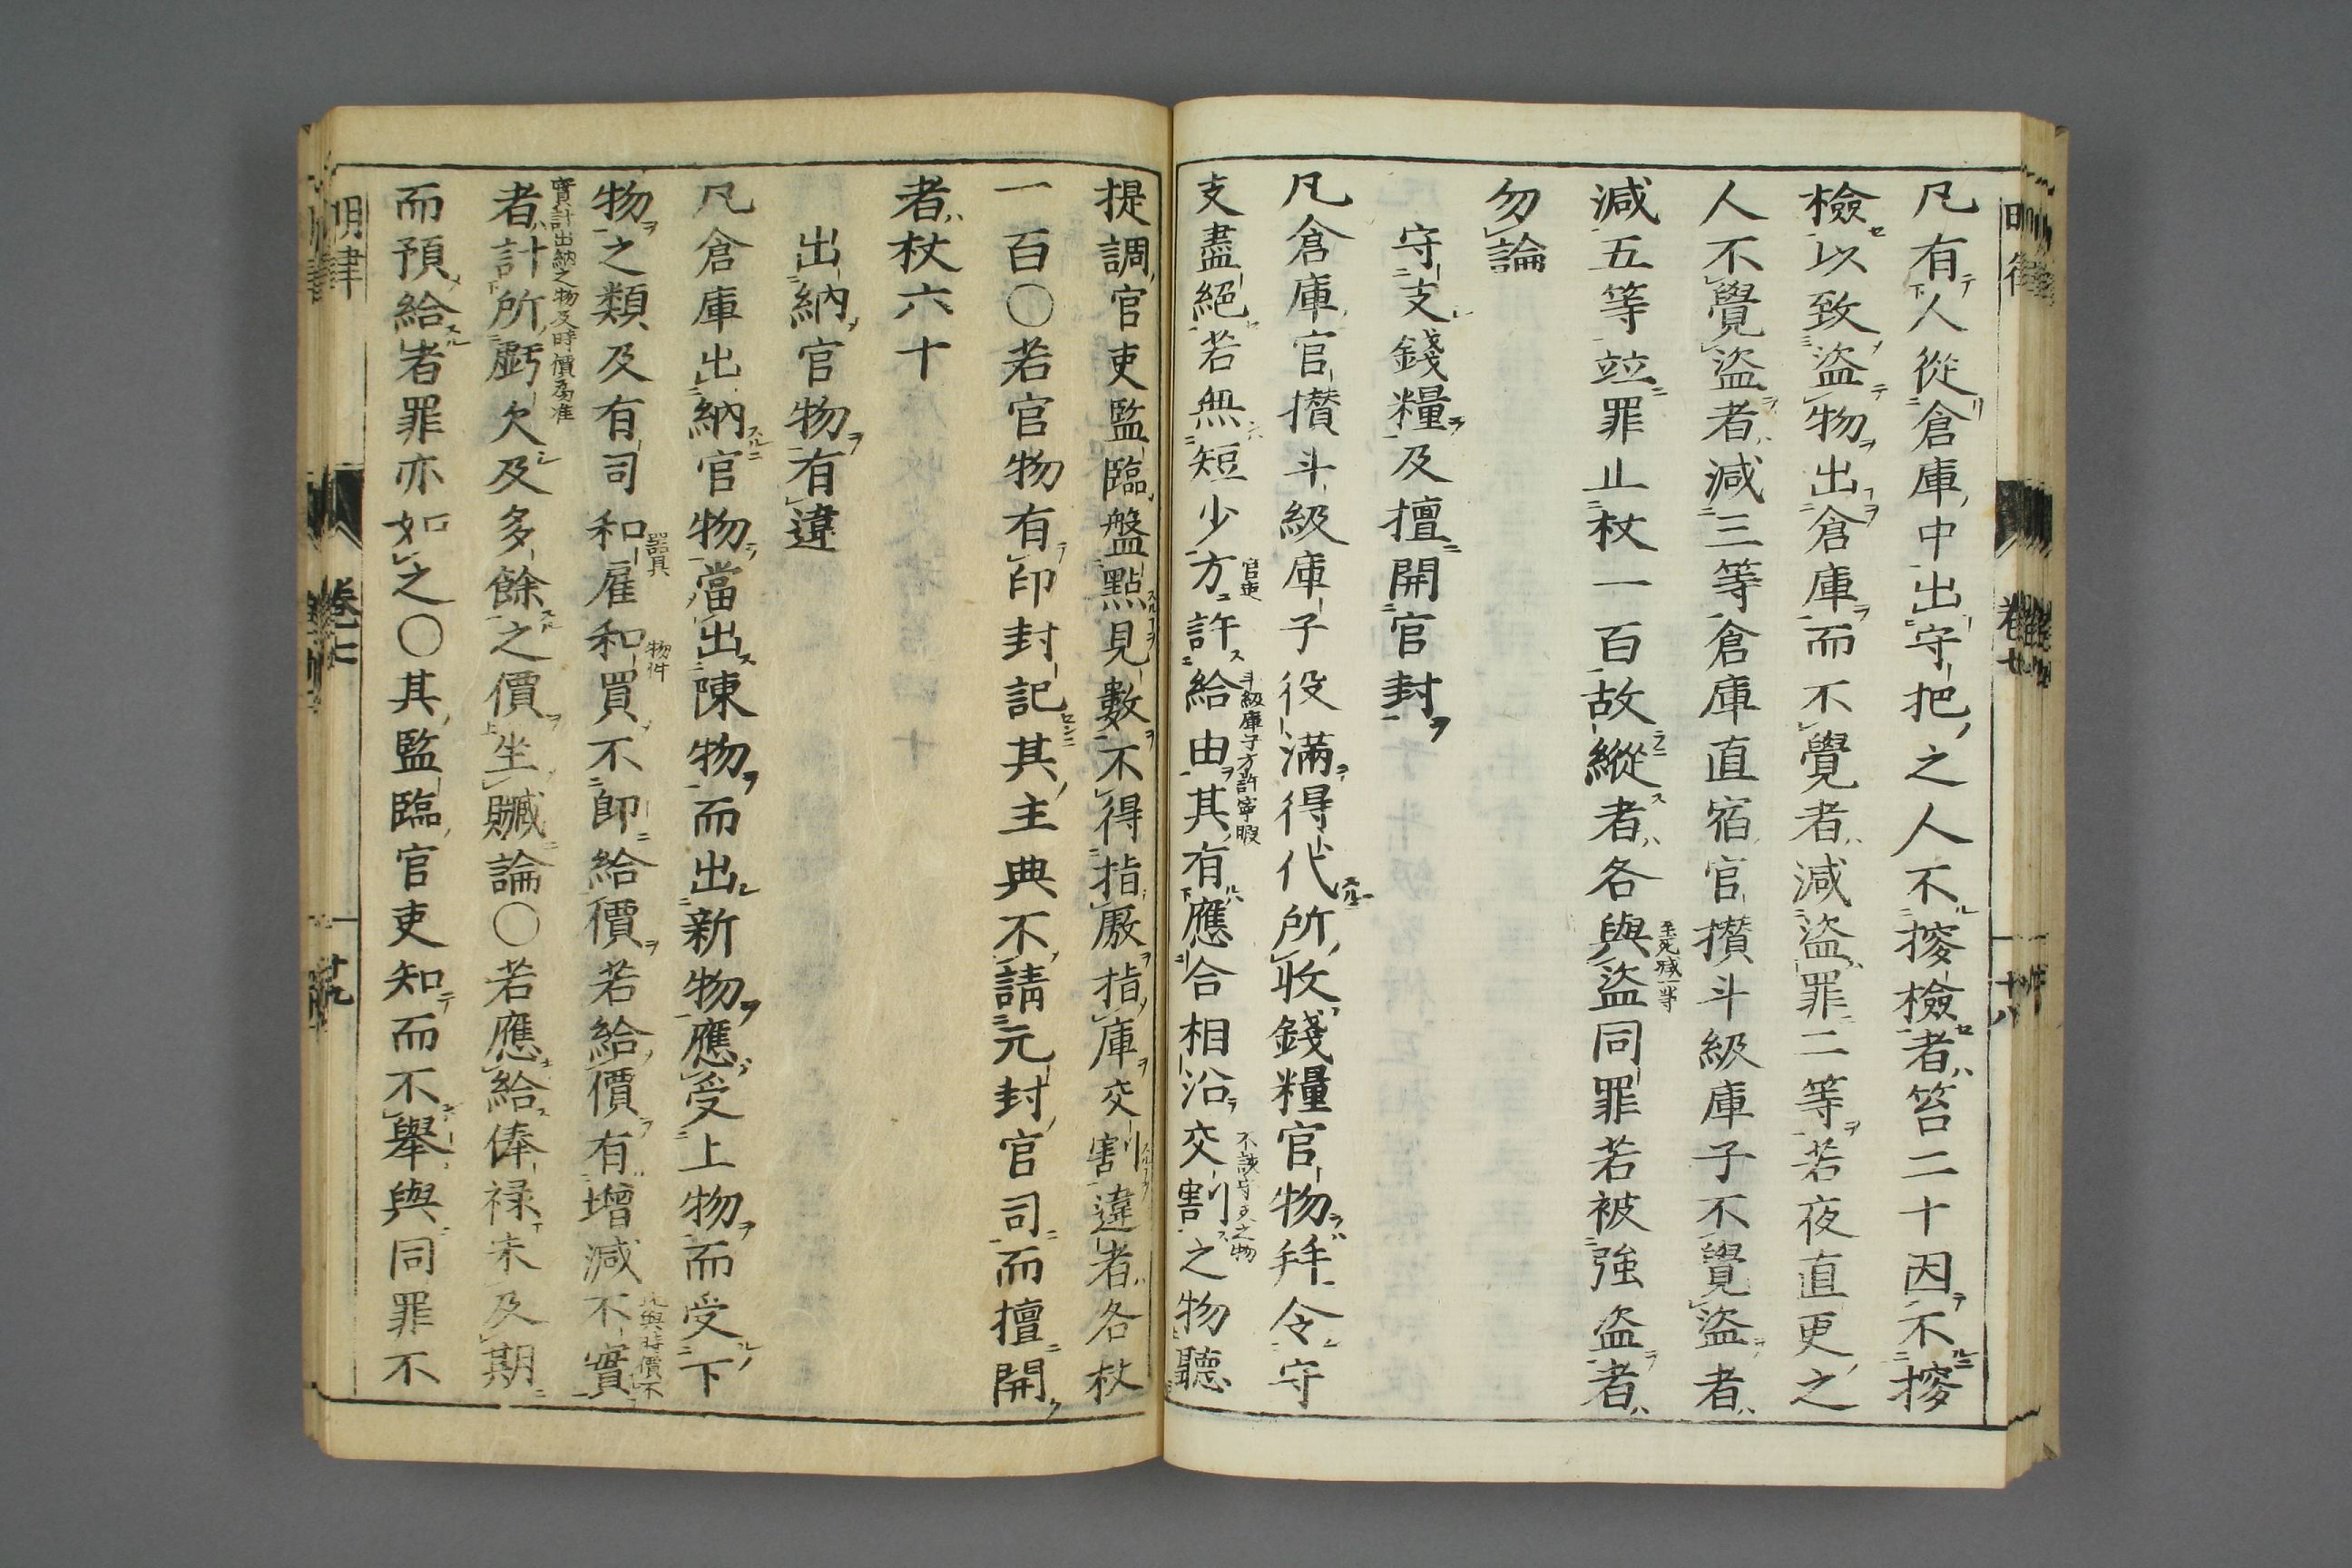 凡有人從倉庫中出守把之人不搜檢者笞二十因不搜
檢以致盜物出倉庫而不覺者減盜罪二等若夜直更之
人不覺盜者減三等倉庫直宿官攢斗級庫子不覺盜者
減五等竝罪止杖一百故縱者各與盜同罪至死減一等若被強盜者
勿論
守支錢糧及擅開官封
凡倉庫官攢斗級庫子役滿得代所收錢糧官物拜令守
支盡絕若無短少方官吏許給由斗級庫子方許寧暇其有應合相沿交割之物聽
提調官吏監臨盤點見數不得指厫指庫交割違者各杖
一百〇若官物有印封記其主典不請元封官司而擅開
者杖六十
出納官物有違
凡倉庫出納官物當出陳物而出新物應受上物而受下
物之類及有司和雇器具和買物件不卽給價若給價有增減不實
實計出納之物及時價爲准
者計所虧欠及多餘之價坐贓論〇若應給俸祿未及期
而預給者罪亦如之〇其監臨官吏知而不舉與同罪不
明律
卷七
十九
十八